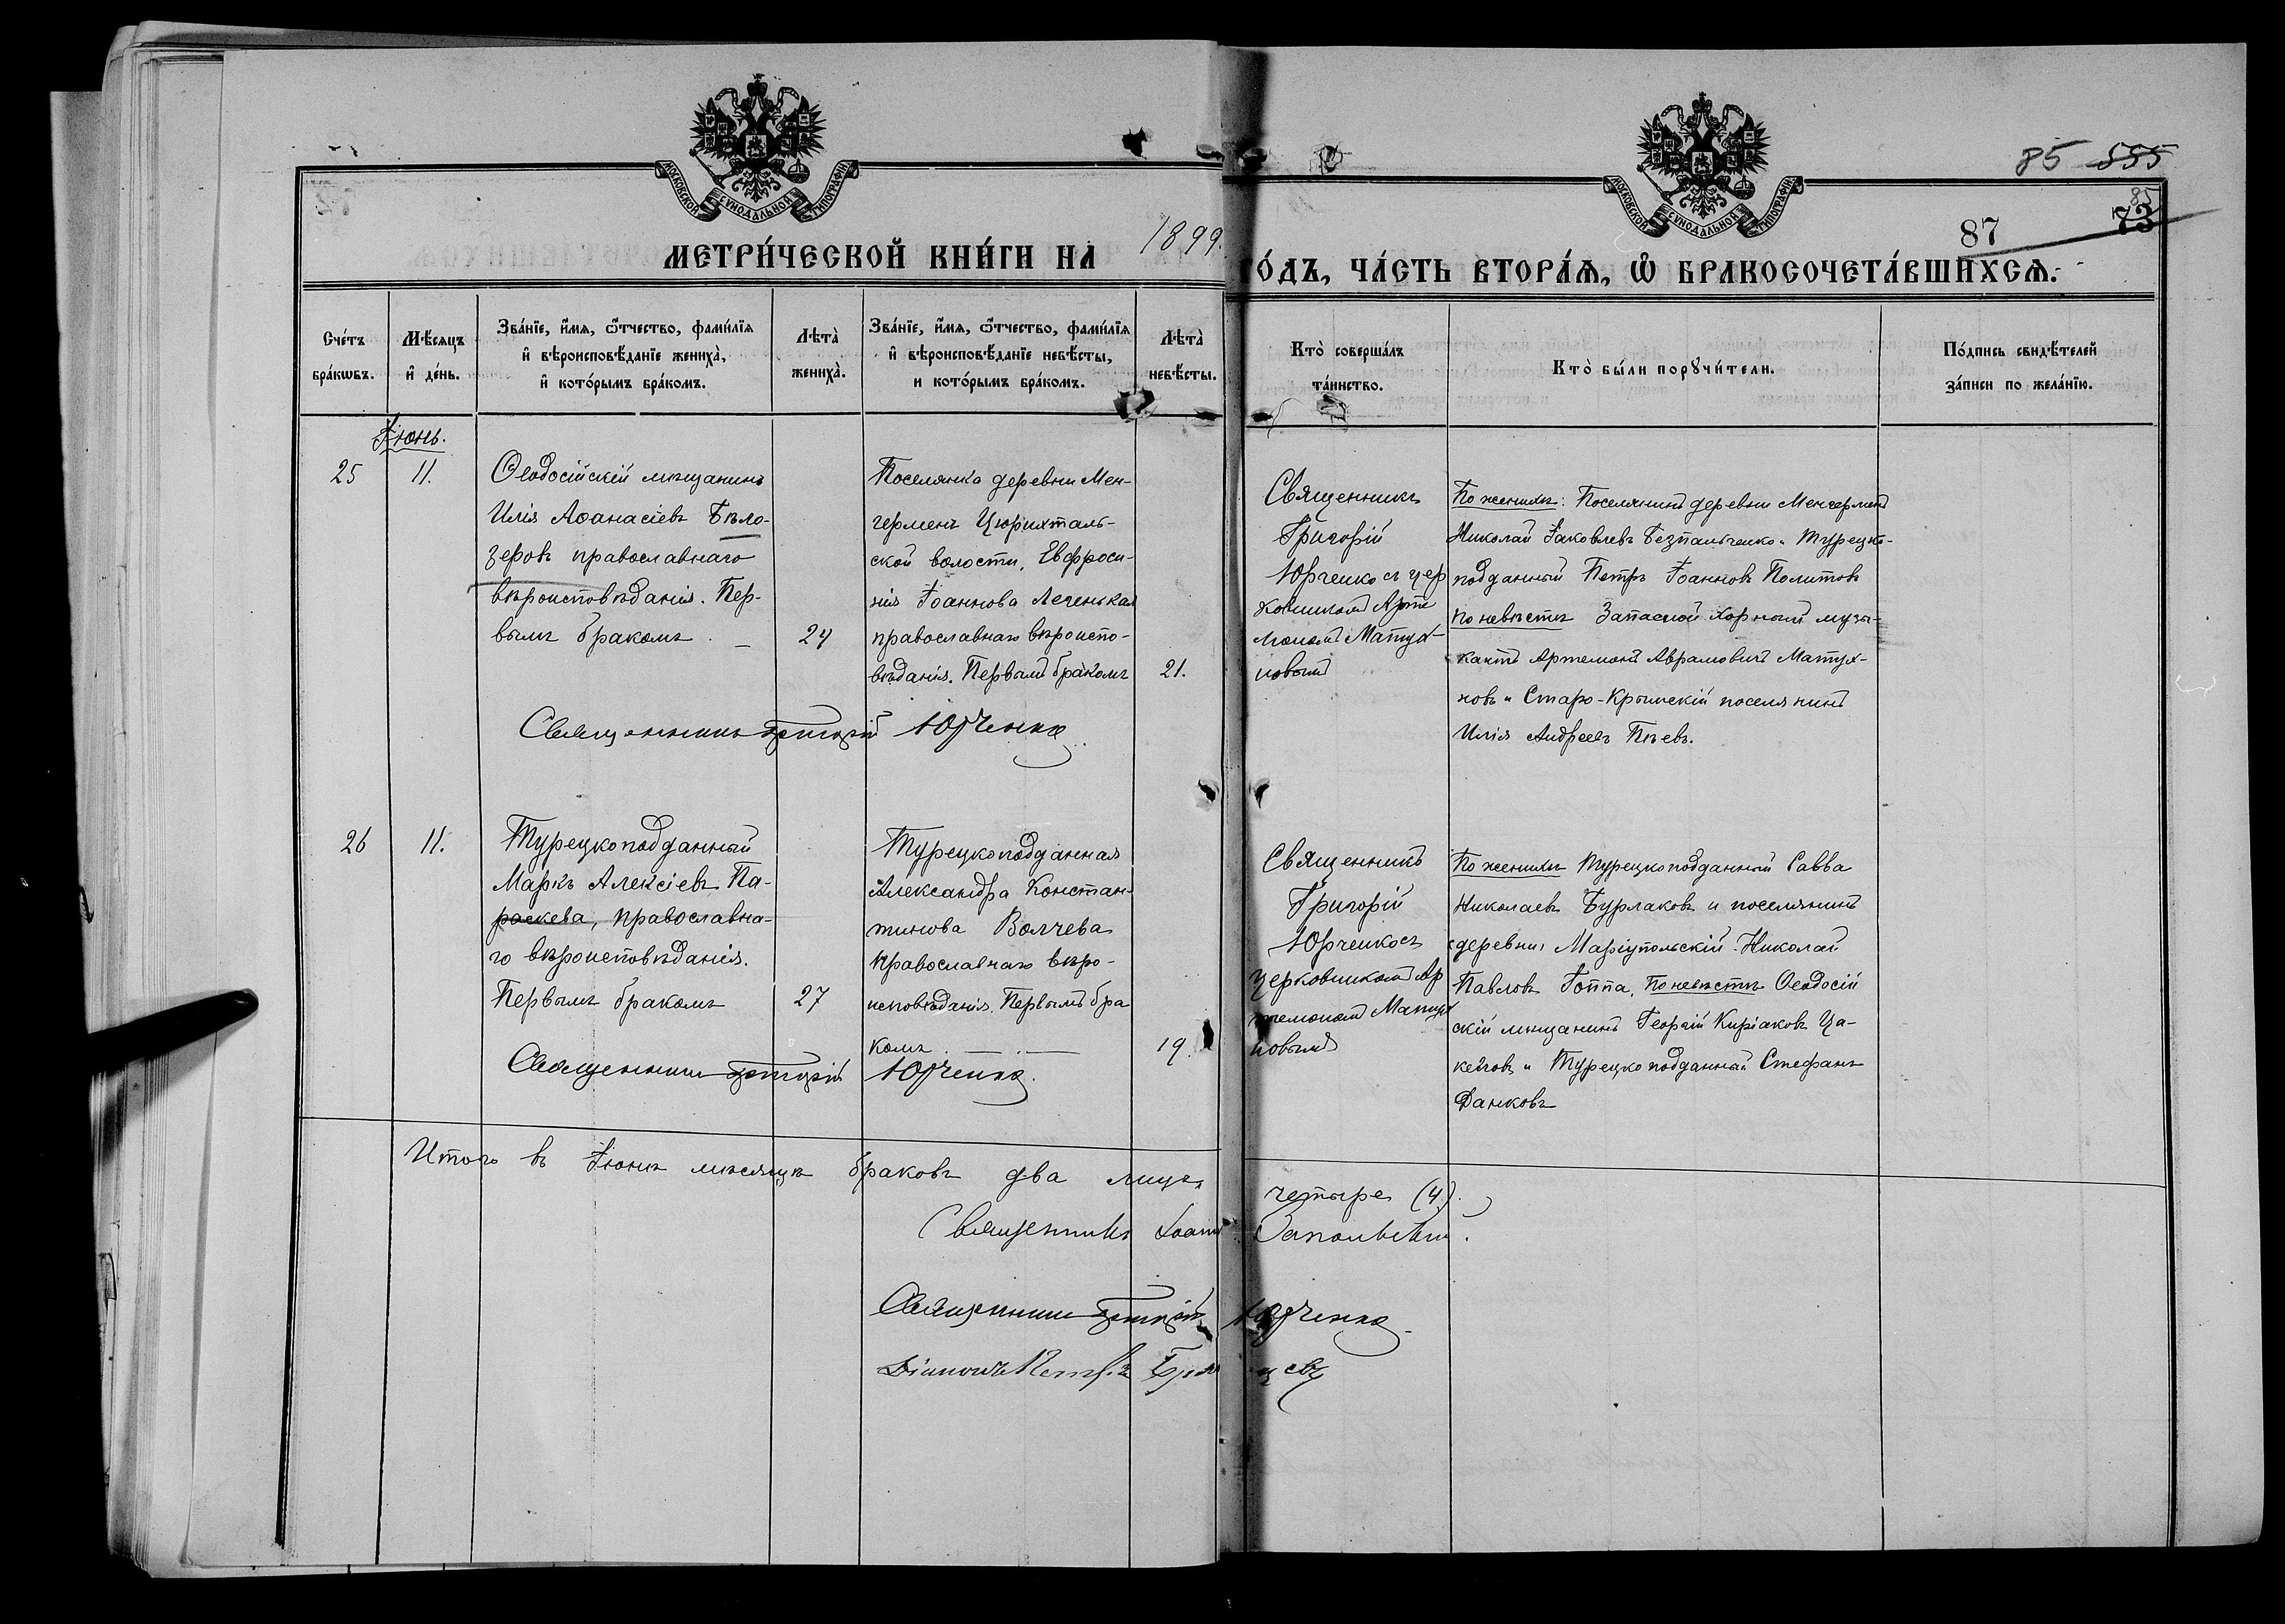 МОСКОВСКОЙ СѴНОДАЛЬНОЙ ТИПОГРАФІИ
МОСКОВСКОЙ СѴНОДАЛЬНОЙ ТИПОГРАФІИ
85 555
85
87 73
МЕТРИ́ЧЕСКОЙ КНИ́ГИ НА 1899.
ГО́ДЪ, ЧА́СТЬ ВТОРА́Ѧ, Ѿ БРАКОСОЧЕТА́ВШИХСѦ.
Сче́тъ
бра́кѡвъ.
Мѣ́сѧцъ
и҆ де́нь.
Зва́нїе, и҆́мѧ, ѻ҆́тчество, фами́лїѧ
и҆ вѣроисповѣ́данїе жениха̀,
и҆ кото́рымъ бра́комъ.
Лѣта̀
жениха̀.
Зва́нїе, и҆́мѧ, ѻ҆́тчество, фами́лїѧ
и҆ вѣроисповѣ́данїе невѣ́сты,
и кото́рымъ бра́комъ.
Лѣта̀
невѣ́сты.
Кто̀ соверша́лъ
та́инство.
Кто̀ бы́ли порꙋчи́тели.
По́дпись свидѣ́телей
за́писи по жела́нїю.
Іюнь.
25
11.
Ѳеодосійскій мѣщанинъ
Илія Аѳанасіевъ Бѣло-
зеровъ православнаго
вѣроисповѣданія. Пер-
вымъ бракомъ.
24
Поселянка деревни Мен-
герменъ Цюрихталь-
ской волости, Евфроси-
нія Іоаннова Легенькая
православнаго вѣроиспо-
вѣданія. Первымъ бракомъ
21.
Священникъ
Григорій
Юрченко съ цер
ковникомъ Арте
мономъ Матух-
новымъ
По женихѣ: Поселянинъ деревни Менгерменъ
Николай Іаковлевъ Безпальченко и Турецко-
подданный Петръ Іоанновъ Политовъ
По невѣстѣ Запасной хорный музы-
кантъ Артемонъ Аврамовичъ Матух-
новъ и Старо-Крымскій поселянинъ
Илія Андреевъ Пѣевъ.
Священникъ Григорій Юрченко
26
11.
Турецкоподданный
Маркъ Алексіевъ Па-
раскева, православна-
го вѣроисповѣданія.
Первымъ бракомъ
27
Турецкоподданная
Александра Констан-
тинова Волчева
православнаго вѣро-
исповѣданія. Первымъ бра
комъ
19.
Священникъ
Григорій
Юрченко съ
церковникомъ Ар
темономъ Матух
новымъ
По женихѣ Турецкоподданный Савва
Николаевъ Бурлаковъ и поселянинъ
деревни Маріупольскій Николай
Павловъ Гоппа, По невѣстѣ Ѳеодосій
скій мѣщанинъ Георгій Киріаковъ Ца-
и Турецкоподданный Стефанъ
Данковъ
Священникъ Григорій Юрченко.
Итого въ Іюнѣ мѣсяцѣ браковъ два лицъ четыре (4).
Священникъ Іоаннъ
Священникъ Григорій Юрченко